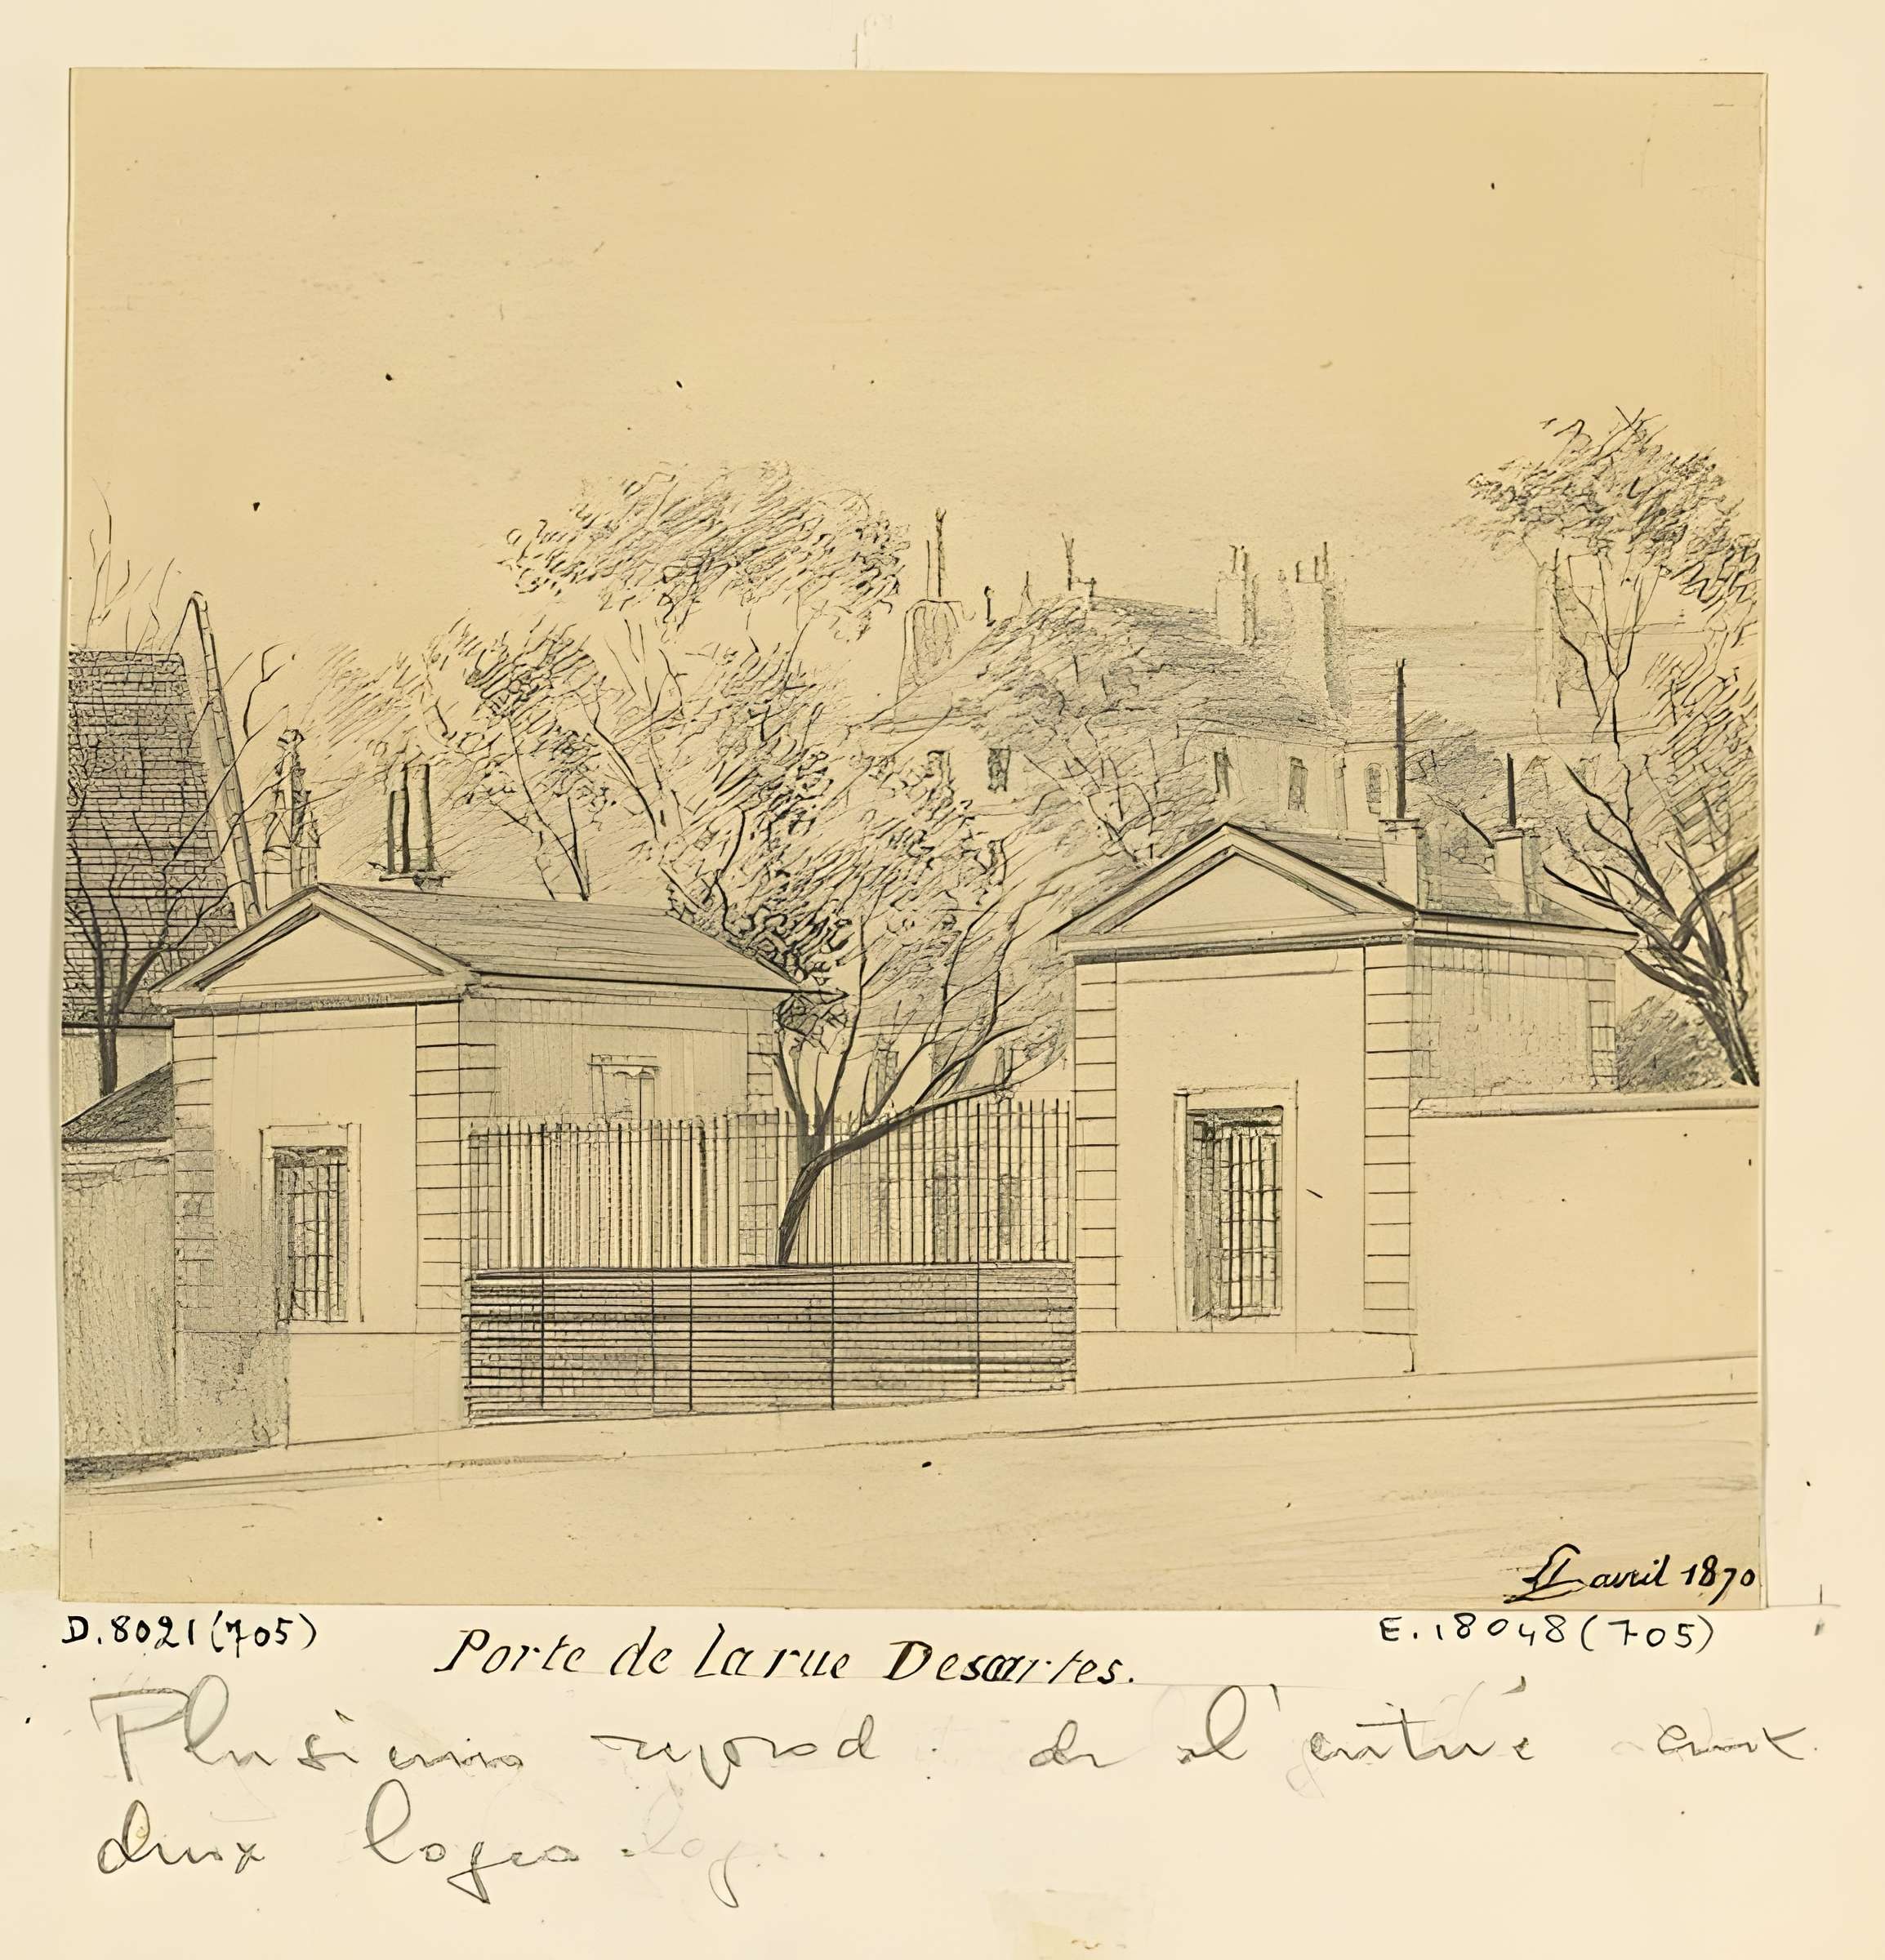 LL avril 1870
D.8021(705)
E.18048(705)
Porte de la rue Descartes.
Plusieurs reprod. de l'entrée aux
deux loges